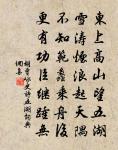 東上高山望五湖
雪濤煙浪起天隅
不知範蠡乘舟後
更有功臣繼踵無
胡曾詠史詩五湖詞典
網集